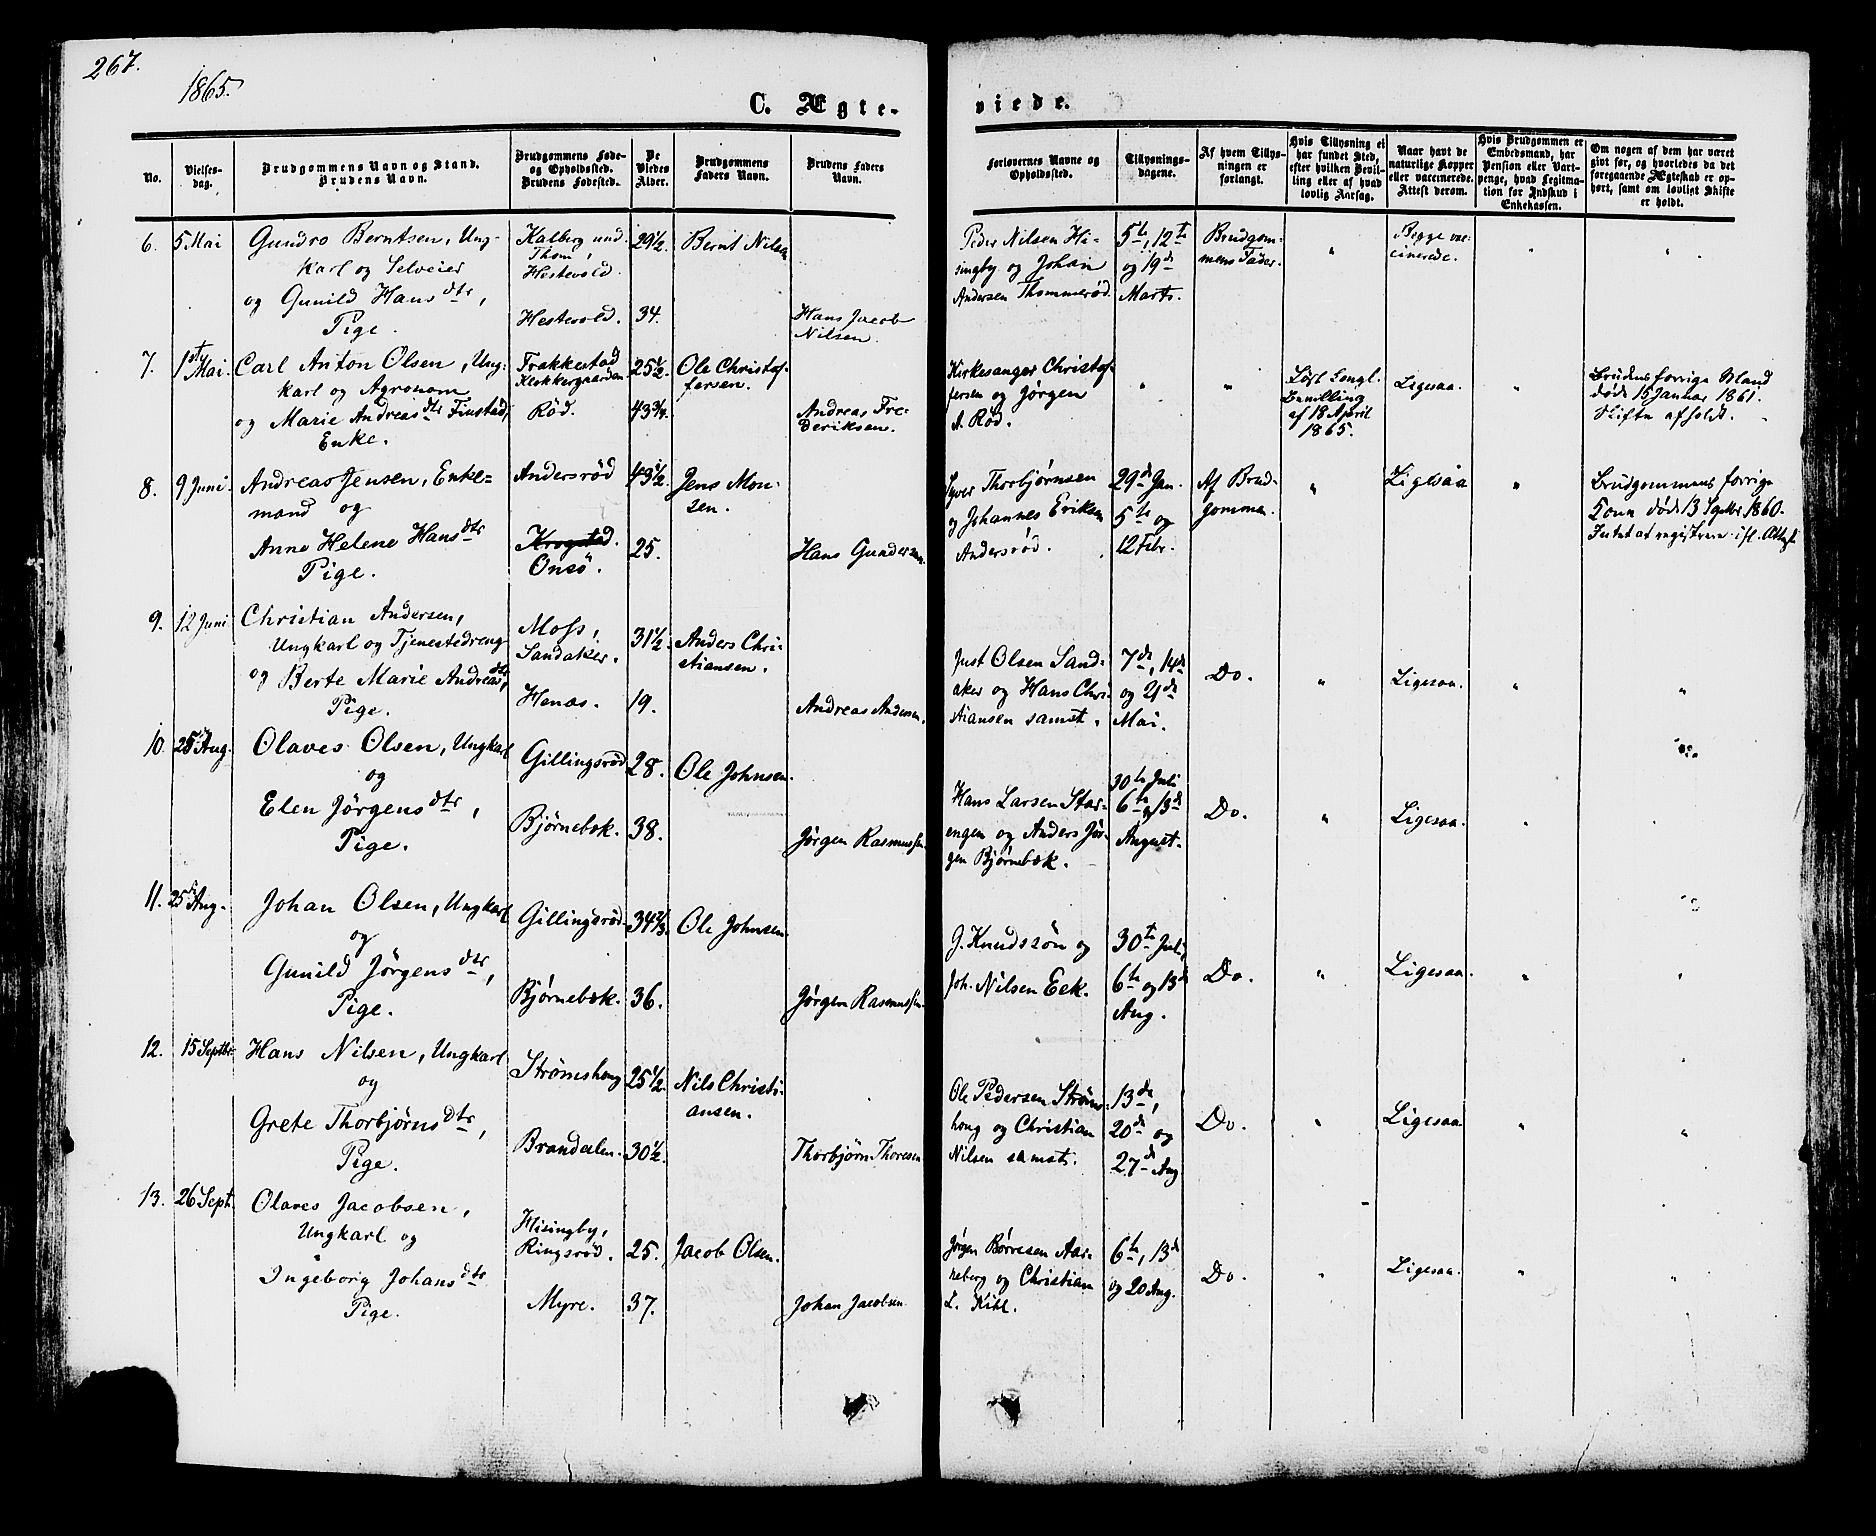 267.
1865.
C. Ægte-
viede.
No.
Vielses-
dag.
Brudgommens Navn og Stand.
Brudens Navn.
Brudgommens Føde-
og Opholdssted.
Brudens Fødested.
De
Viedes
Alder.
Brudgommens
Faders Navn.
Brudens Faders
Navn.
Forlovernes Navne og
Opholdssted.
Tillysnings-
dagene.
Af hvem Tillys-
ningen er
forlangt.
Hvis Tillysning ei
har fundet Sted,
efter hvilken Bevil-
ling eller af hvad
lovlig Aarsag.
Naar havt de
naturlige Kopper
eller vaccinerede.
Attest derom.
Hvis Brudgommen er
Embedsmand, har
Pension eller Vart-
penge, hvad Legitima-
tion for Indskud i
Enkekassen.
Om nogen af dem har været
givt før, og hvorledes da det
foregaaende Ægteskab er op-
hørt, samt om lovligt Skifte
er holdt.
6. 5 Mai
Gundro Berntsen, Ung-
karl og Selveier
og Gunild Hans dtr,
Pige.
Kalberg und.
Thom,
Hestevold.
Hestevold.
29 1/2
34.
Bernt Nilsen
Hans Jacob
Nilsen.
Peder Nilsen Hi-
singby og Johan
Andersen Thommerød.
5te, 12te
og 19de
Marts.
Brudgom-
mens Fader.
"
Begge vac-
cinerede.
"
"
7. 1st Mai.
Carl Anton Olsen, Ung-
karl og Agronom
og Marie Andreas dtr Finstad,
Enke.
Trakkestad
Klokkergaarden
Rød.
25 1/2.
43 3/4.
Ole Christof-
fersen.
Andreas Fre-
deriksen.
Kirkesanger Christof-
fersen og Jørgen
A. Rød.
"
"
Løst Kongl.
Bevilling
af 18 April
1865.
Ligesaa.
"
Brudens forrige Mand
døde 15 Januar 1861.
Skifte afholdt.
8. 9 Juni.
Andreas Jensen, Enke-
mand og
Anne Helene Hans dtr
Pige.
Andersrød
Krogsted.
Onsö.
43 1/2
25.
Jens Mon-
sen.
Hans Gundersen
Syver Thorbjørnsen
og Johannes Eriksen
Andersrød.
29de Jan.
5te og
12 Febr.
Af Brud-
gommen.
"
Ligesaa
"
Brudgommens forrige
Kone døde 13 Septbr 1860.
Intet at registrere ifl. Attest
9. 12 Juni
Christian Andersen,
Ungkarl og Tjenestedreng
og Berte Marie Andreas dtr,
Pige.
Moss,
Sandaker.
Henæs.
31 1/2
19.
Anders Chri-
stiansen.
Andreas Andersen.
Just Olsen Sand-
aker og Hans Chri-
stiansen samst.
7de, 14de
og 21de
Mai.
Do.
"
Ligesaa.
"
"
10. 25 Aug.
Olaves Olsen, Ungkarl
og
Elen Jørgens dtr,
Pige.
Gillingsrød
Bjørnebæk.
28.
38.
Ole Johnsen.
Jørgen Rasmussen
Hans Larsen Star-
engen og Anders Jør-
gen Bjørnebæk.
30te Juli
6te og 13de
August.
Do.
"
Ligesaa.
"
"
11. 25 Aug.
Johan Olsen, Ungkarl
og
Gunild Jørgens dtr,
Pige.
Gillingsrød
Bjørnebæk.
34 2/3.
36.
Ole Johnsen
Jørgen Rasmussen
G. Knudssøn og
Joh. Nilsen Eek.
30te Juli,
6te og 13de
Aug.
Do.
"
Ligesaa.
"
"
12. 15 Septbr
Hans Nilsen, Ungkarl
og
Grete Thorbjørns dtr,
Pige.
Strømshoug
Brandalen.
25 1/2.
30 1/2.
Nils Christi-
ansen.
Thorbjørn Thoresen
Ole Pedersen Strøms-
houg og Christian
Nilsen samst.
13de,
20de og
27de Aug
Do.
"
Ligesaa.
"
"
13. 26 Sept.
Olaves Jacobsen,
Ungkarl og
Ingeborg Johans dtr
Pige.
Hisingby,
Ringsrød.
Myre.
25.
37.
Jacob Olsen.
Johan Jacobsen
Jørgen Børresen Aar-
neberg og Christian
L. Kihl.
6te, 13de
og 20 Aug.
Do.
"
Ligesaa.
"
"